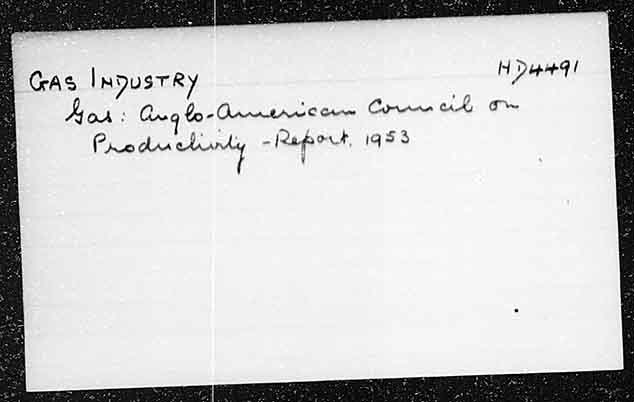 GAS INDUSTRY HD4491
Gas: Anglo-American Council on
Productivity - Report. 1953